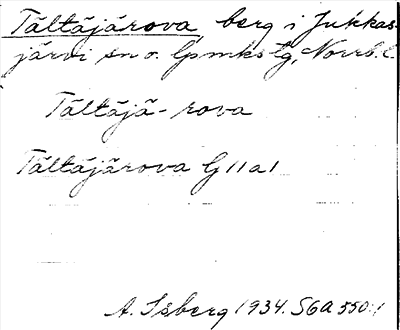 Tältäjärova, berg i Jukkas-
järvi sn o. lpmkstg, Norrb. l.
Tältäjä-rova
Tältäjärova G 11 a 1
A. Isberg 1934. SGA 550:1